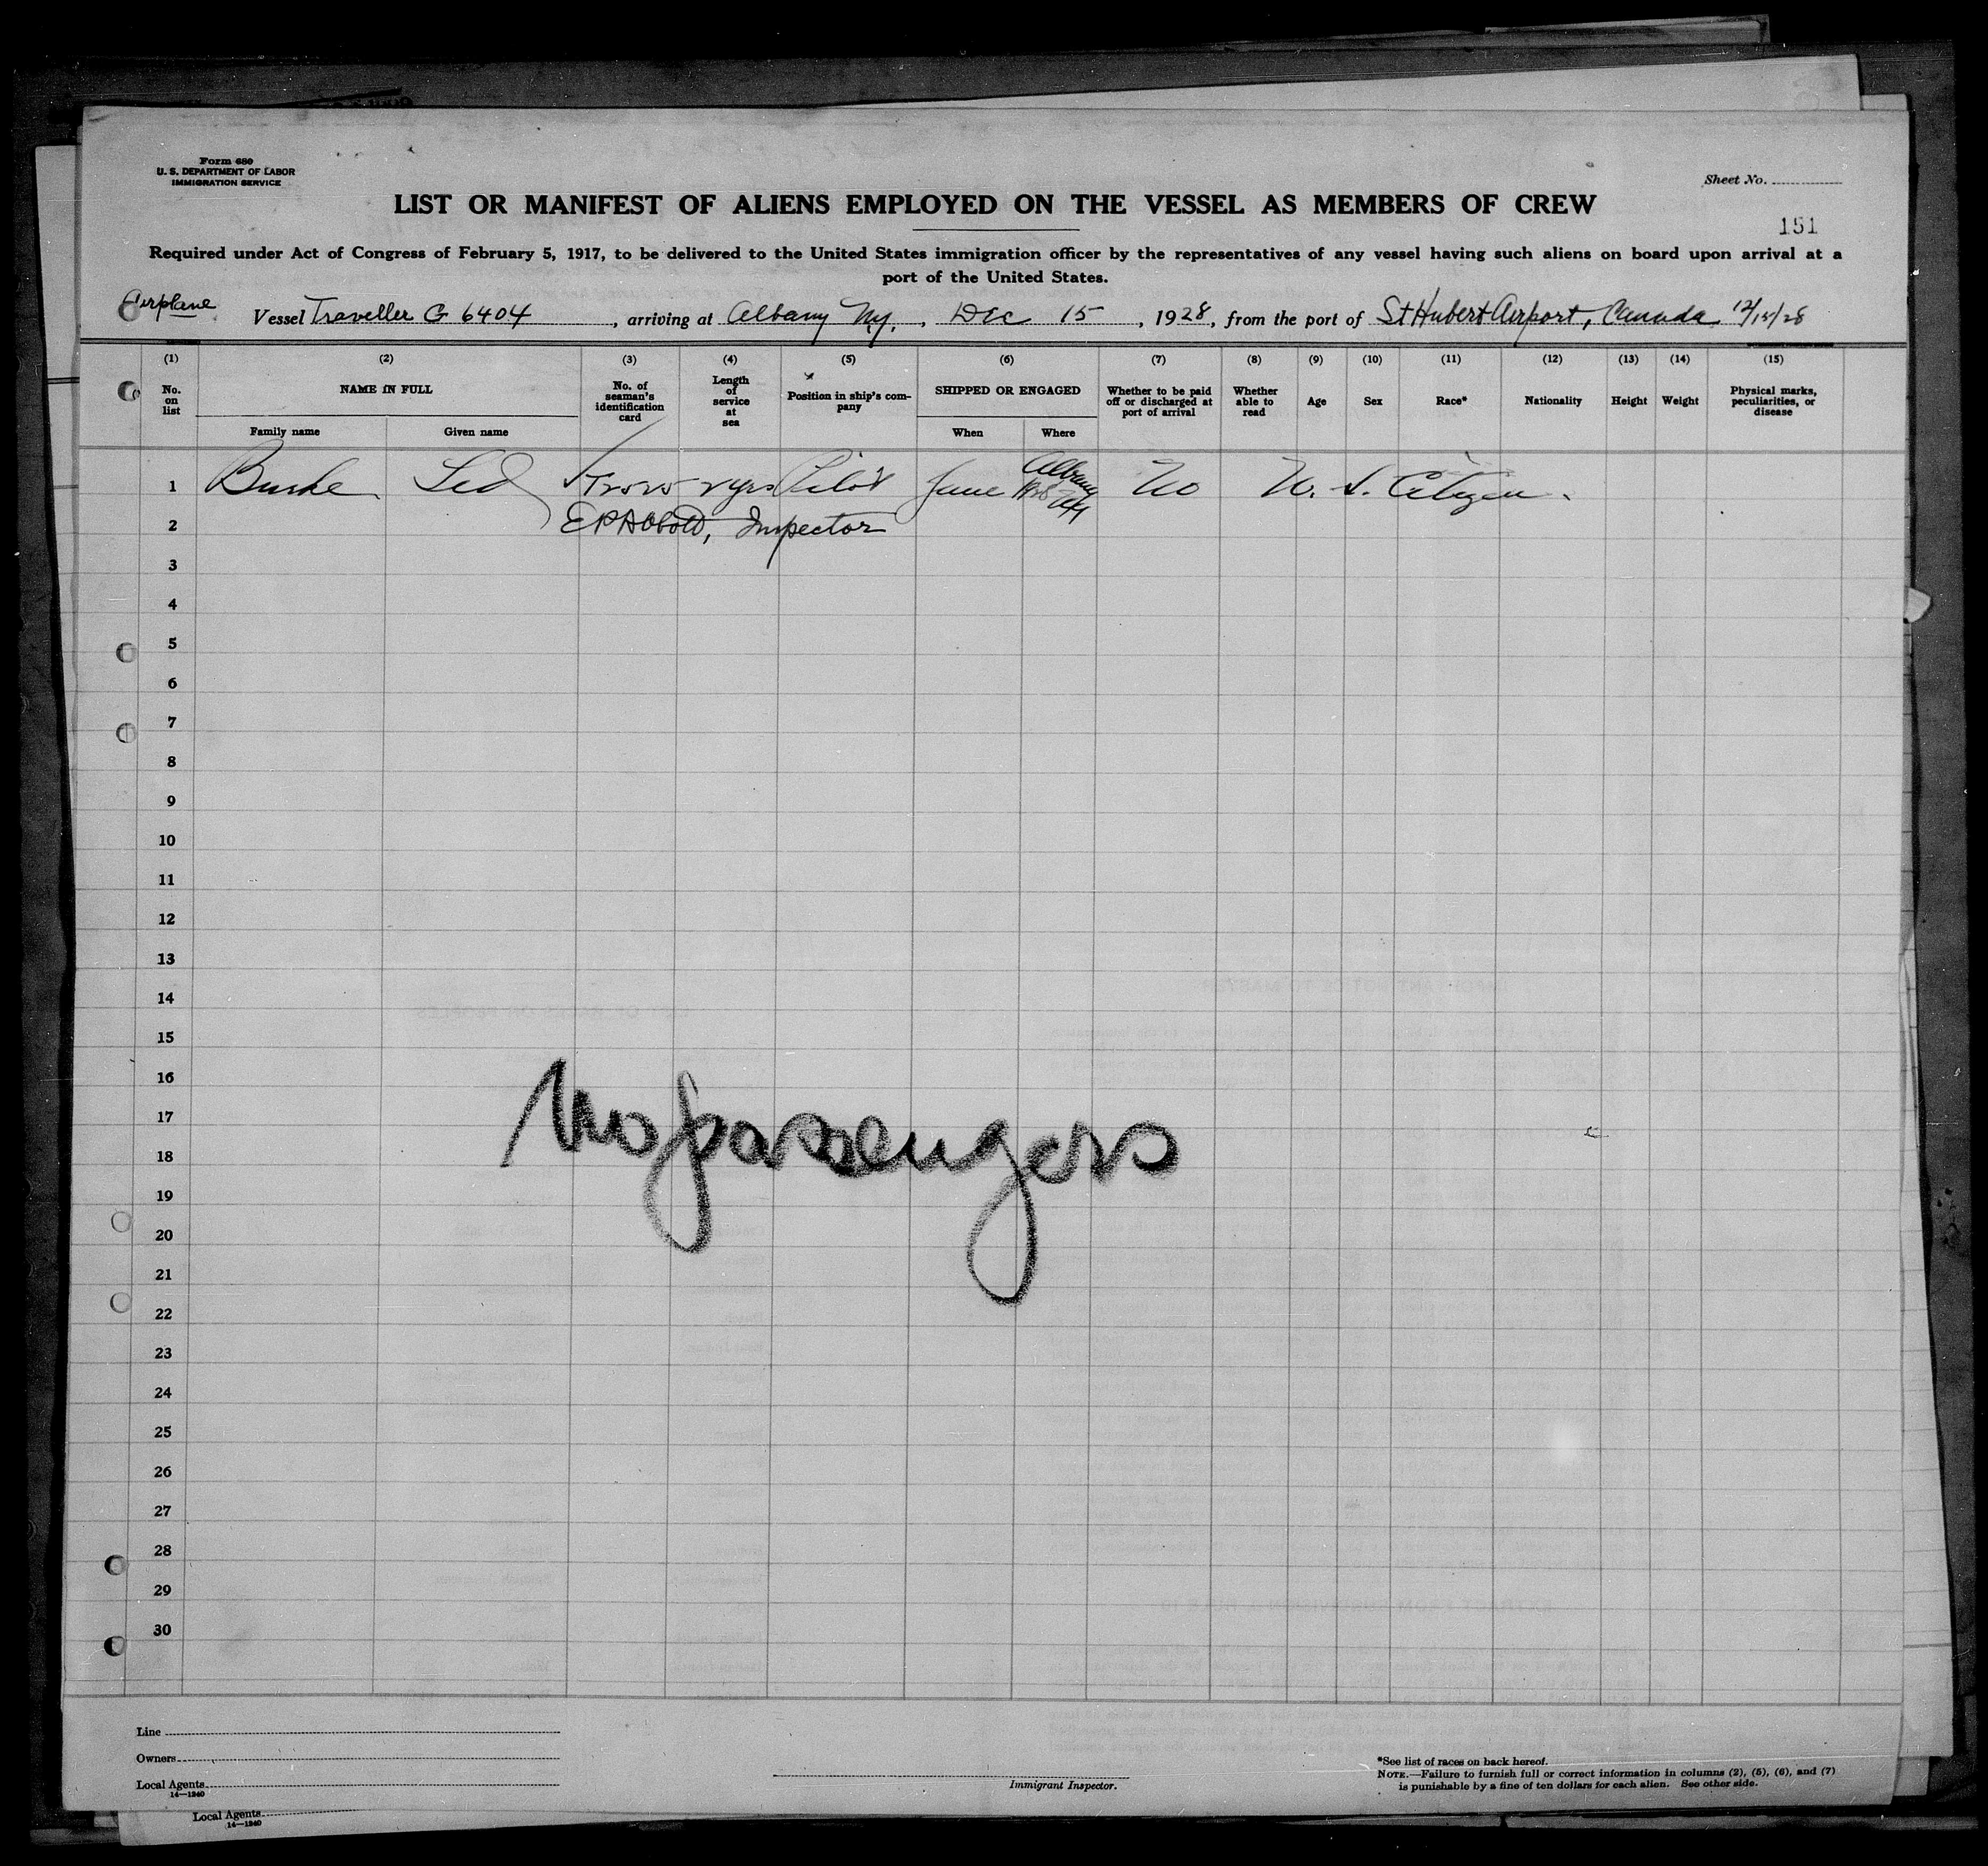 Form 680
U. S. DEPARTMENT OF LABOR
IMMIGRATION SERVICE
Sheet No.
LIST OR MANIFEST OF ALIENS EMPLOYED ON THE VESSEL AS MEMBERS OF CREW
151
Required under Act of Congress of February 5, 1917, to be delivered to the United States immigration officer by the representatives of any vessel having such aliens on board upon arrival at a
port of the United States.
Airplane Vessel Traveller G 6404, arriving at Albany Ny., Dec 15, 1928, from the port of St Hubert Airport, Canada 12/15/28
(1) (2) (3) (4) (5) (6) (7) (8) (9) (10) (11) (12) (13) (14) (15)
No. on list
NAME IN FULL
Family name
Given name
No. of seaman's identification card
Length of service at sea
Position in ship's company
SHIPPED OR ENGAGED
When
Where
Whether to be paid off or discharged at port of arrival
Whether able to read
Age
Sex
Race*
Nationality
Height
Weight
Physical marks, peculiarities, or disease
1 Burke Led 2 yrs Pilot June Albany No U. S. Citizen.
2 Inspector
3
4
5
6
7
8
9
10
11
12
13
14
15
16
17
18
19
20
21
22
23
24
25
26
27
28
29
30
No passengers
Line
Owners
Local Agents
14—1240
Immigrant Inspector.
*See list of races on back hereof.
NOTE.—Failure to furnish full or correct information in columns (2), (5), (6), and (7)
is punishable by a fine of ten dollars for each alien. See other side.
Local Agents
14—1240